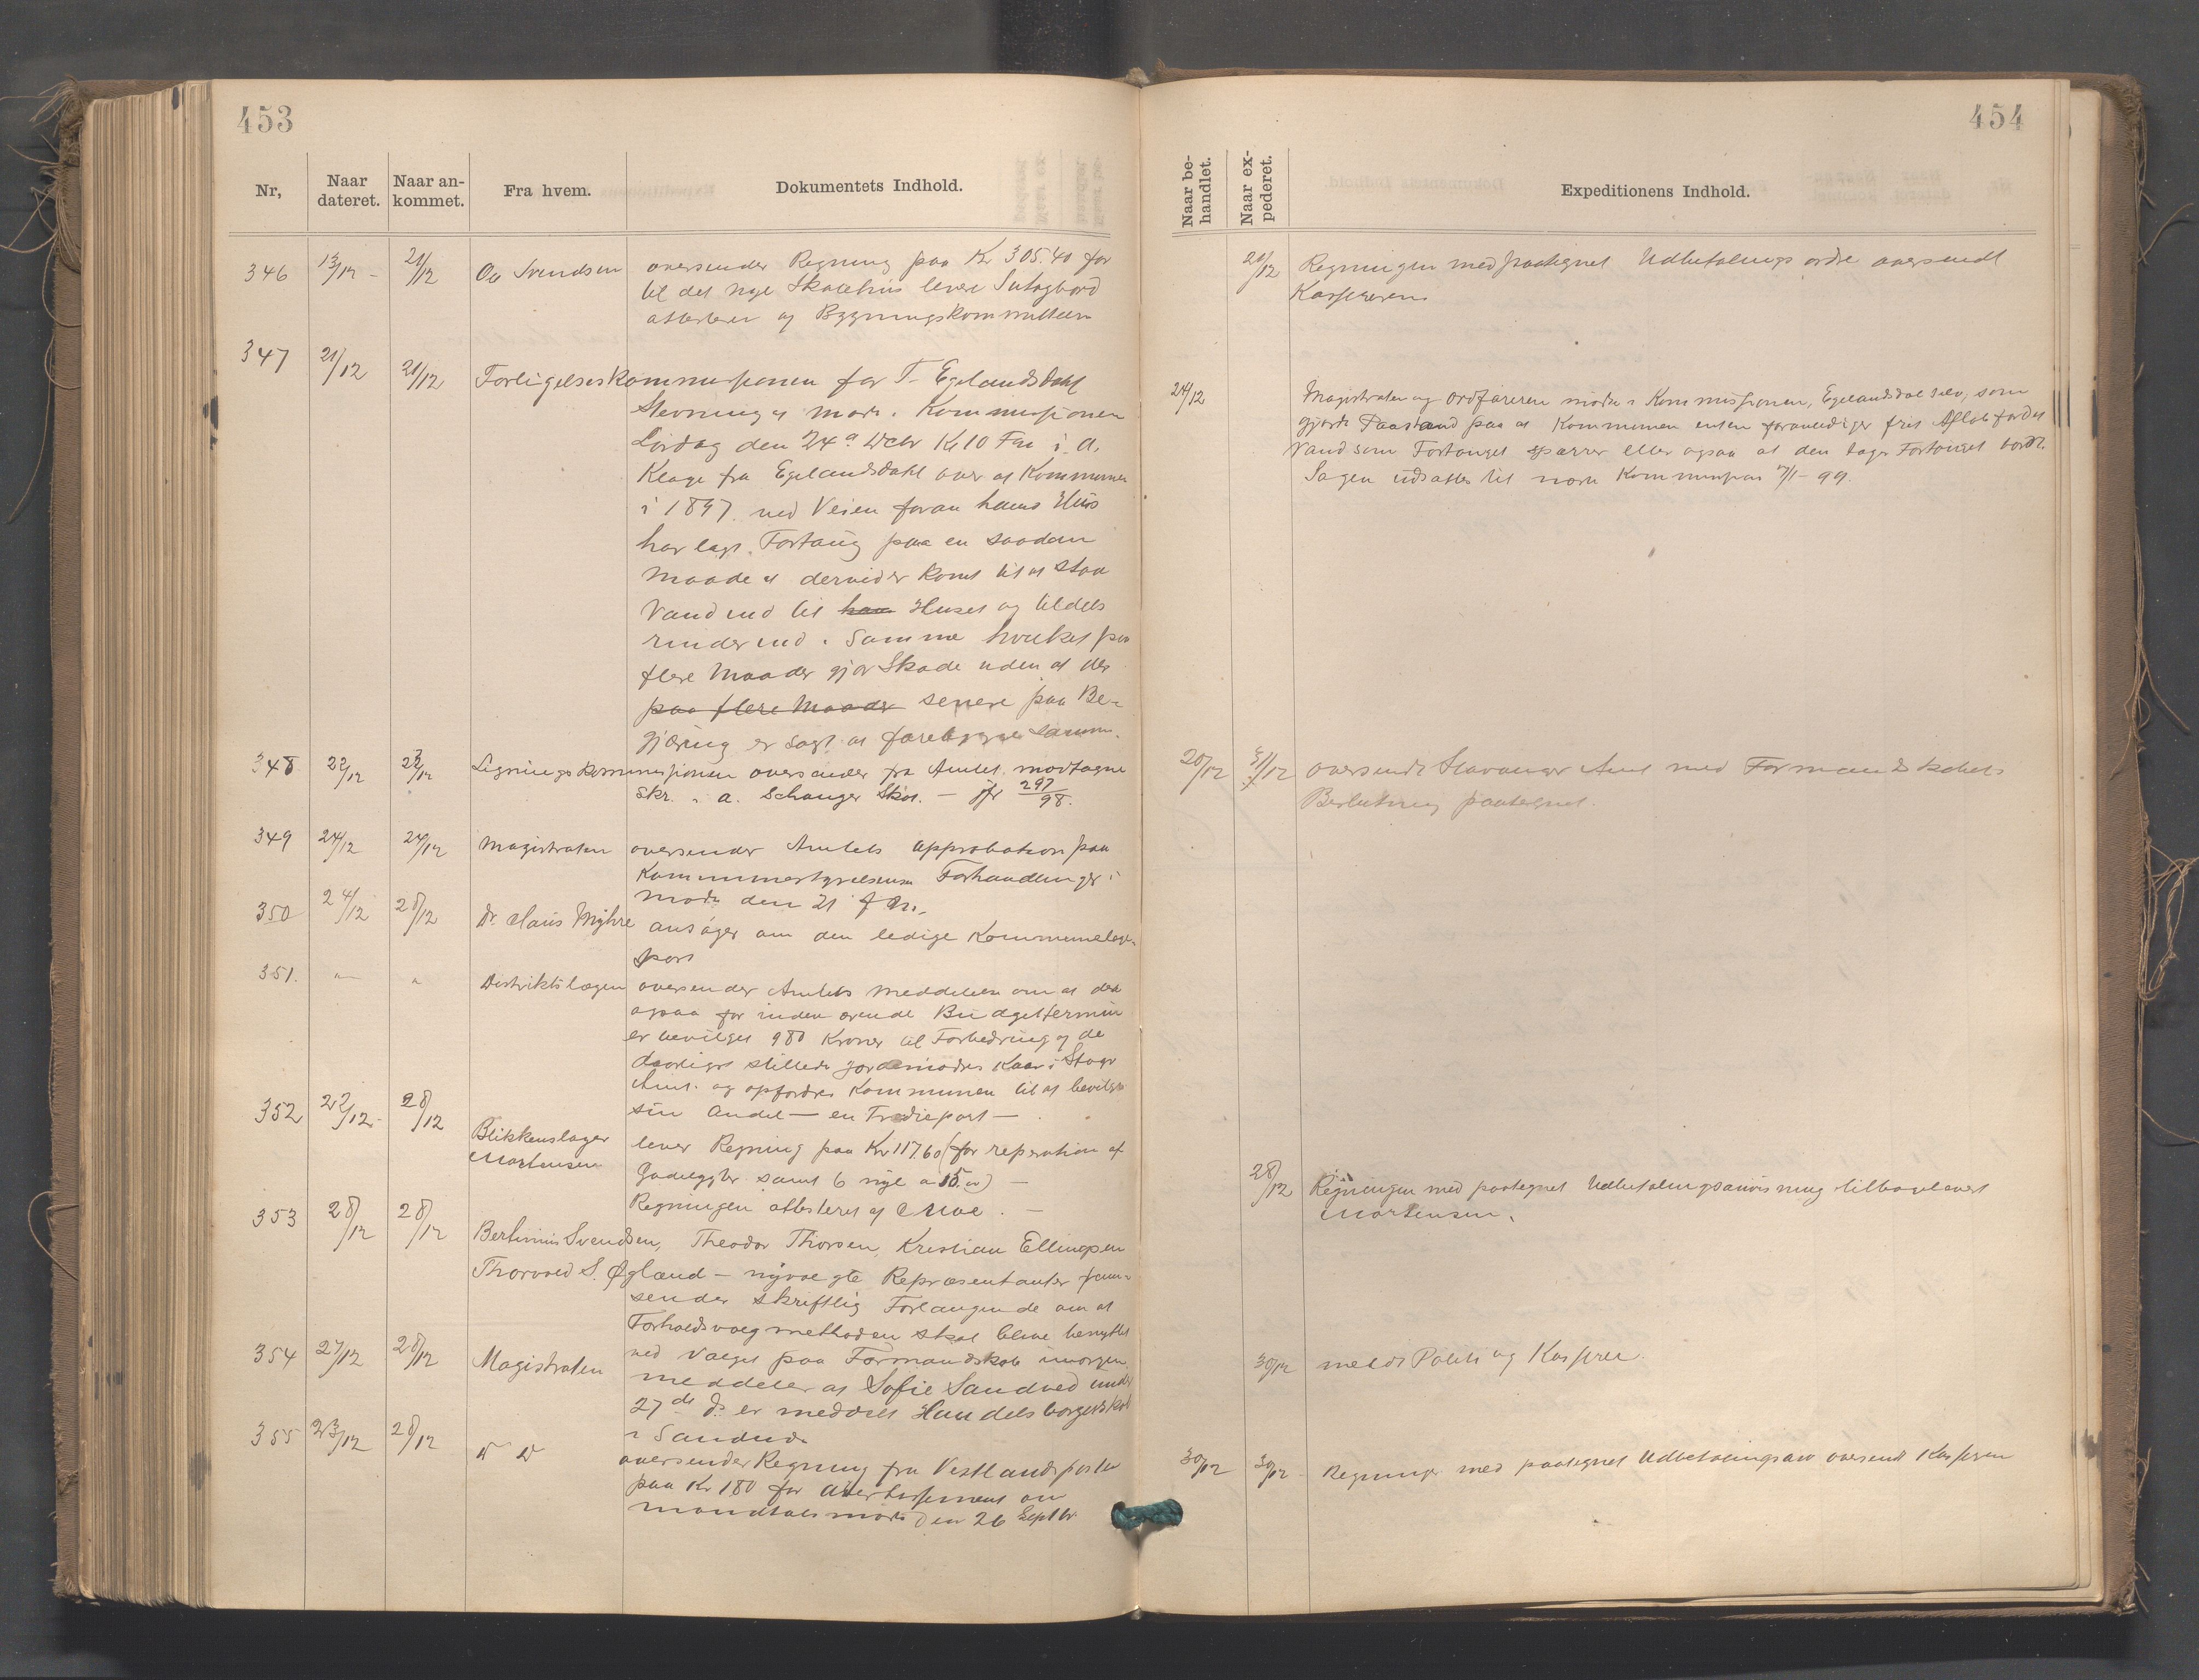 453
Nr,
Naar dateret.
Naar ankommet.
Fra hvem.
Dokumentets Indhold.
346 13/12 - 21/12 Svendsen oversender Regning paa Kr 305.40 for
til det nye Skolehus
attesteret af Bygningskommitteen
347 21/12 21/12 Forligelseskommissionen for T. Egelandsdahl
Stevning at møde i Kommissionen
Lørdag den 24de Decbr Kl 10 Fm i A.
Klage fra Egelandsdahl over at Kommunen
i 1897 ved Veien foran hans Hus
har lagt Fortaug paa en saadan
Maade at derved er komt til at staa
Vand ind til han Huset og tildels
rinder ind i samme hvilket paa
flere Maader gjør Skade uden at der
paa flere Maader senere paa Be-
gjæring er søgt at forebygge samme.
348 22/12 22/12 Ligningskommissionen oversender fra Amtet modtagne
Skr. i a. Schanger Skat. - jfr 297/98.
349 24/12 24/12 Magistraten oversender Amtets Approbation paa
Kommunestyrelsens Forhandlinger i
møde den 21 f.m.
350 24/12 28/12 Dr. Claus Myhre ansøger om den ledige Kommunelæge-
post
351. " " Distriktslægen oversender Amtets Meddelelse om at der
ogsaa for indeværende Budgettermin
er bevilget 980 Kroner til Forbedring af de
daarligst stillede Jordemødres Kaar i Stavgr
Amt. og opfordrer Kommunen til at bevilge
sin Andel — en Trediepart —
352 22/12 28/12 Blikkenslager
Mortensen
lever Regning paa Kr 117.60 (for reperation af
Gadelygter samt 6 nye a 15.00) —
Regningen attesteret af Moe. —
353 28/12 28/12 Bertinius Svendsen, Theodor Thorsen, Kristian Ellingsen
Thorvald S. Øgland — nyvalgte Repræsentanter frem-
sender skriftlig Forlangende om at
Forholdsvalgmethoden skal blive benyttet
ved Valget paa Formandskab imorgen.
354 27/12 28/12 Magistraten meddeler at Sofie Sandved under
27de ds er meddelt Handelsborgerskab
i Sandnes
355 23/12 28/12 D D oversender Regning fra Vestlandsposten
paa Kr 1.80 for Avertissement om
mandtalsmøde den 26 Septbr.
454
Naar behandlet.
Naar expederet.
Expeditionens Indhold.
21/12 Regningen med paategnet Udbetalingsordre oversendt
Kassereren
24/12 Magistraten og Ordføreren mødte i Kommissionen, Egelandsdal selv, som
gjorde Paastand paa at Kommunen enten foranlediger frit Afløb for det
Vand som Fortouget sparrer eller ogsaa at den tager Fortouget bort.
Sagen udsattes til næste Kommission 7/1-99.
20/12 31/12 oversendt Stavanger Amt med Formandskabets
Beslutning paategnet.
28/12 Regningen med paategnet Udbetalingsanvisning tilbageleveret
Mortensen.
30/12 meldt Politi og Kasserer.
30/12 30/12 Regningen med paategnet Udbetalingsanv oversendt Kasseren